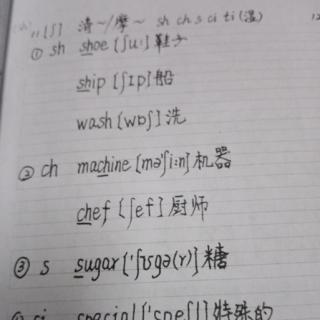 [ʃ] 清~/摩~ sh ch s ci ti (湿)
① sh shoe [ʃu:] 鞋子
ship [ʃɪp] 船
wash [wɒʃ] 洗
② ch machine [mə'ʃi:n] 机器
chef [ʃef] 厨师
③ s sugar ['ʃʊgə(r)] 糖
ci special ['speʃl] 特殊的